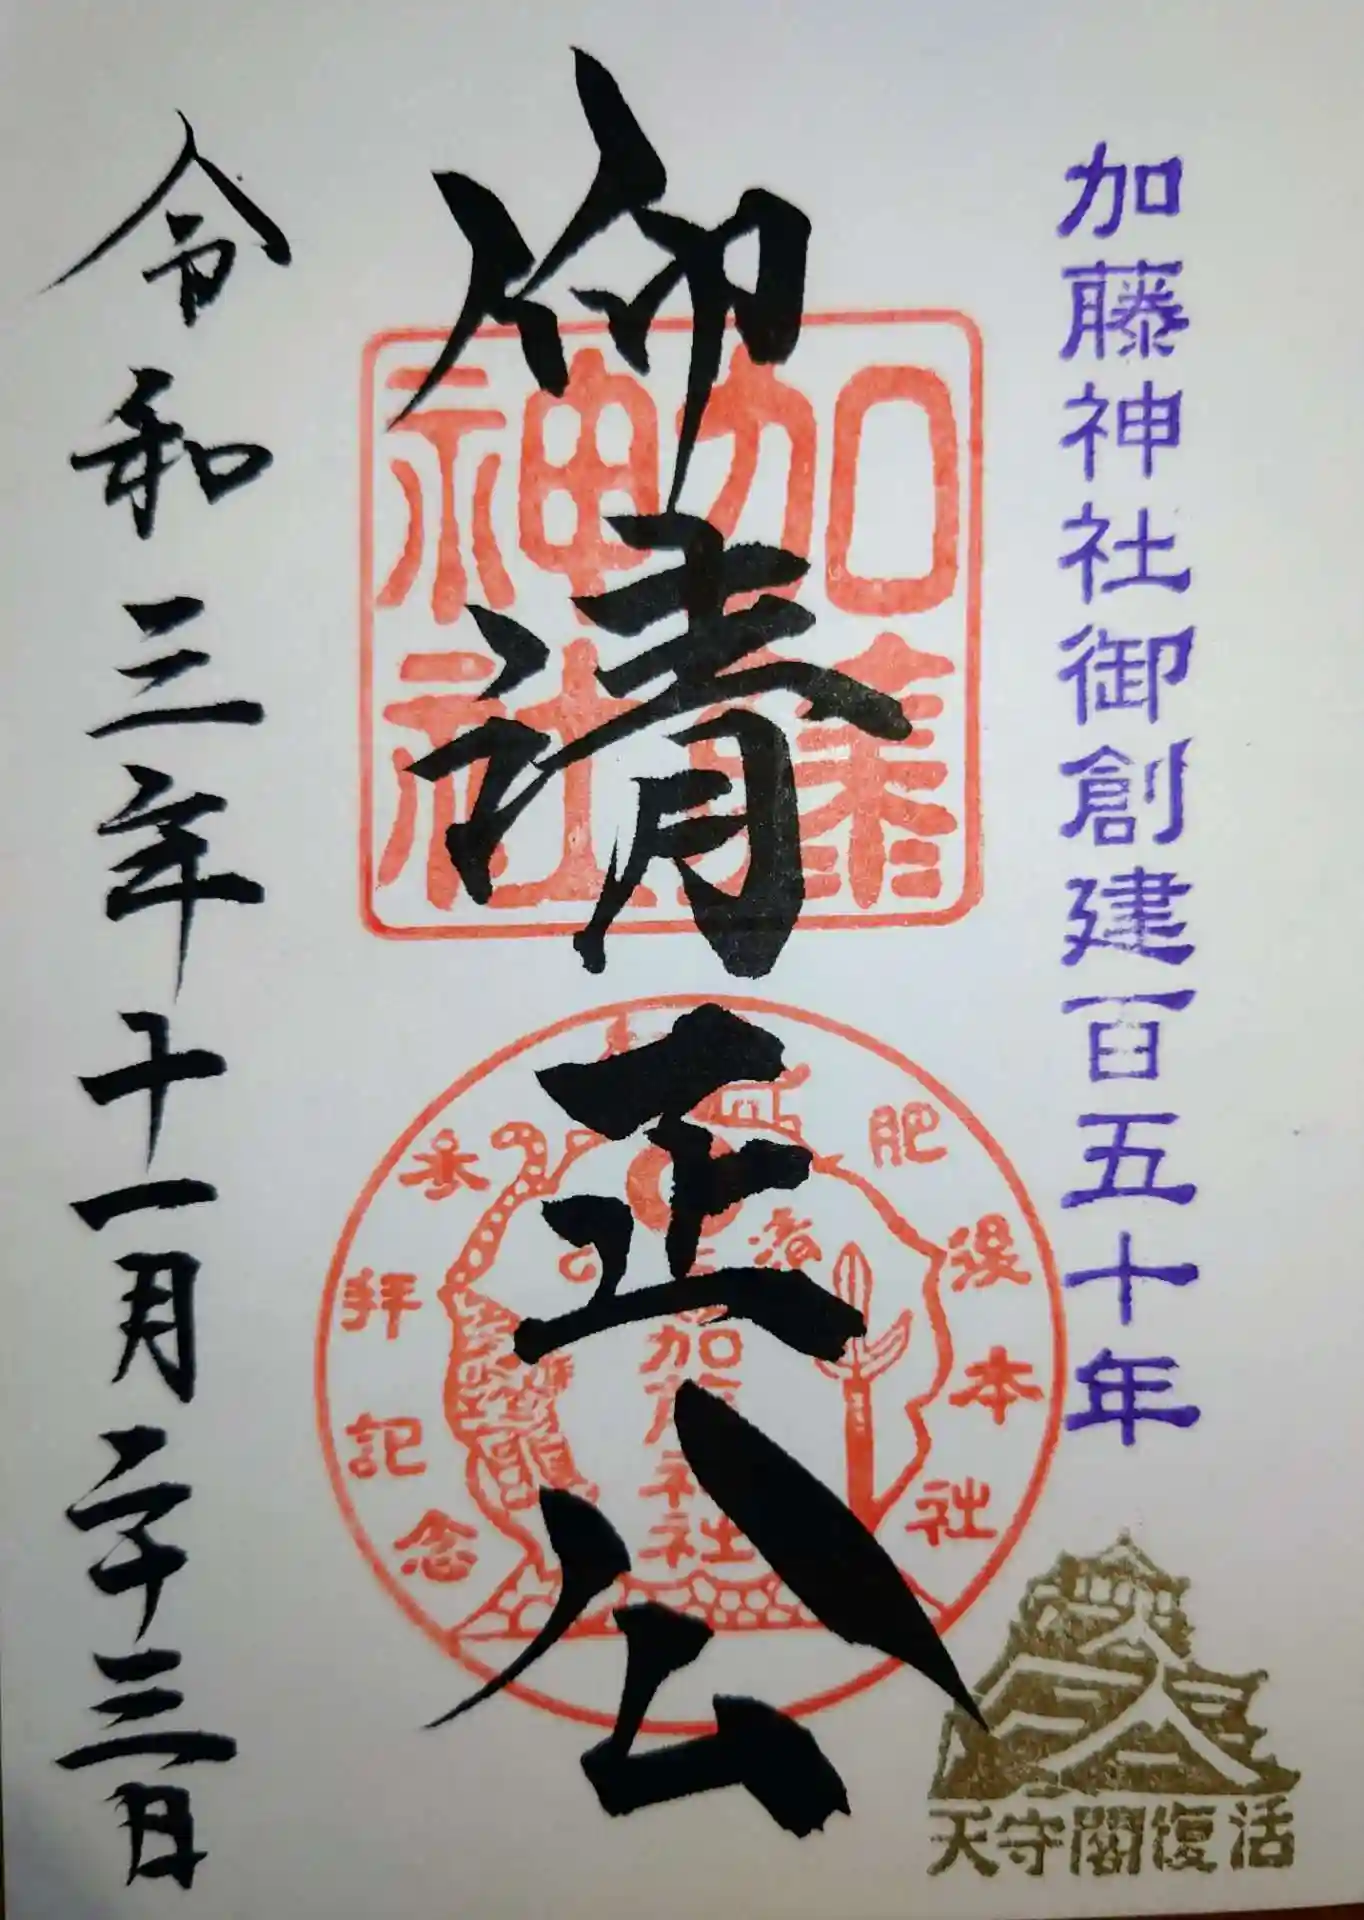 加藤神社御創建百五十年
仰清正公
加藤神社
肥後本社
参拝記念
清正公
加藤神社
天守閣復活
令和三年十一月二十三日